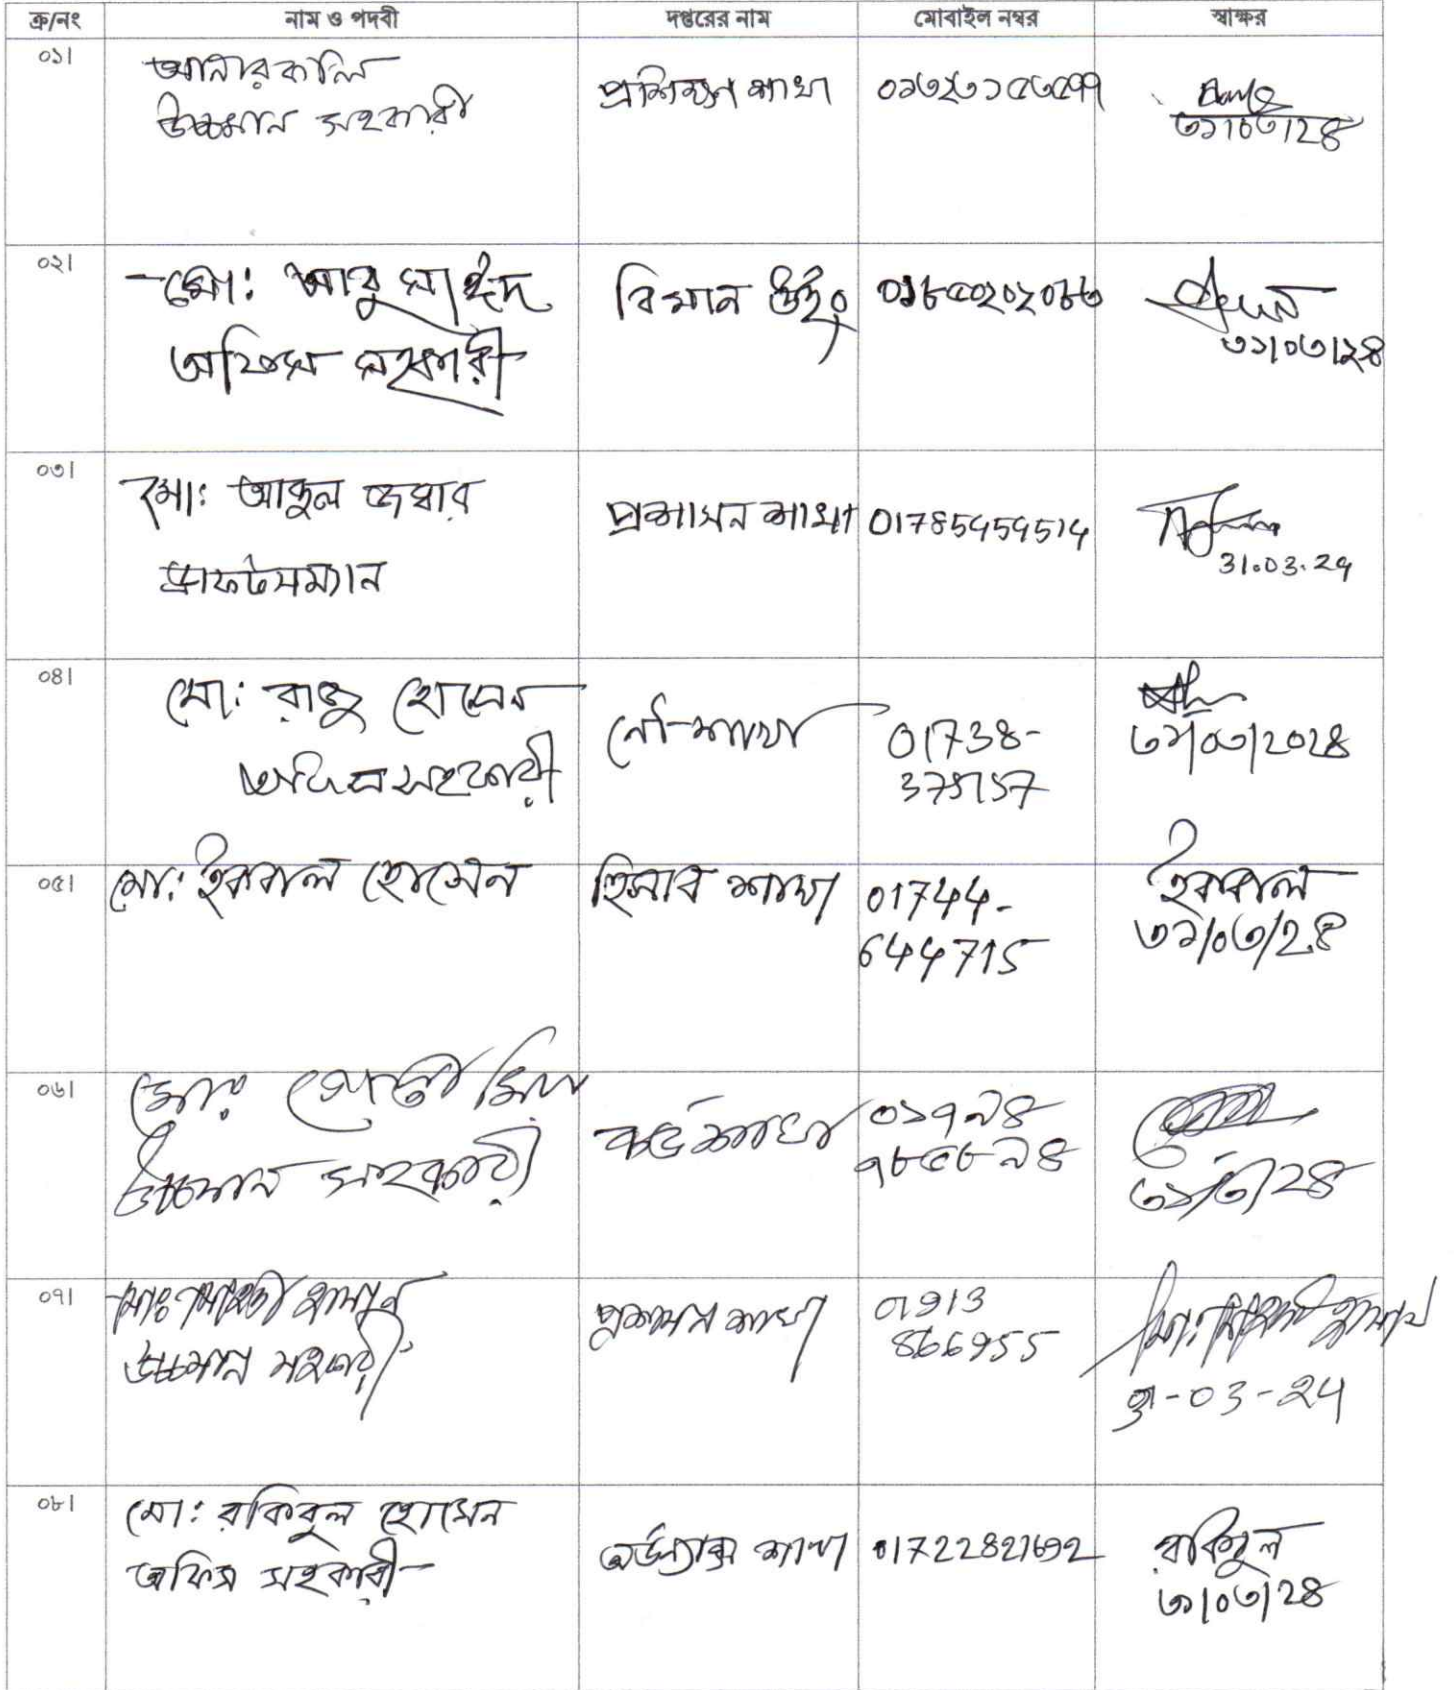 ক্র/নং নাম ও পদবী দপ্তরের নাম মোবাইল নম্বর স্বাক্ষর
০১।
আনারকলি
উচ্চমান সহকারী
প্রশিক্ষণ শাখা
৩১/০৩/২৪
০২।
মো: আবু সাঈদ
অফিস সহকারী
বিমান উইং
৩১/০৩/২৪
০৩।
মো: আব্দুল জব্বার
ড্রাফটসম্যান
প্রশাসন শাখা
01785959514
31.03.24
০৪।
মো: রাজু হোসেন
অফিস সহকারী
নৌ-শাখা
01738-
৩১/০৩/২০২৪
০৫।
মো: ইকবাল হোসেন
হিসাব শাখা
01744-
644715
ইকবাল
৩১/০৩/২৪
০৬।
উচ্চমান সহকারী
শাখা
০১৭৯৪
৭৮৫৮৯৪
৩১/৩/২৪
০৭।
উচ্চমান সহকারী
প্রশাসন শাখা
01913
866955
31-03-24
০৮।
মো: রকিবুল হোসেন
অফিস সহকারী
অর্ডন্যান্স শাখা
01722821692
রকিবুল
৩১/০৩/২৪